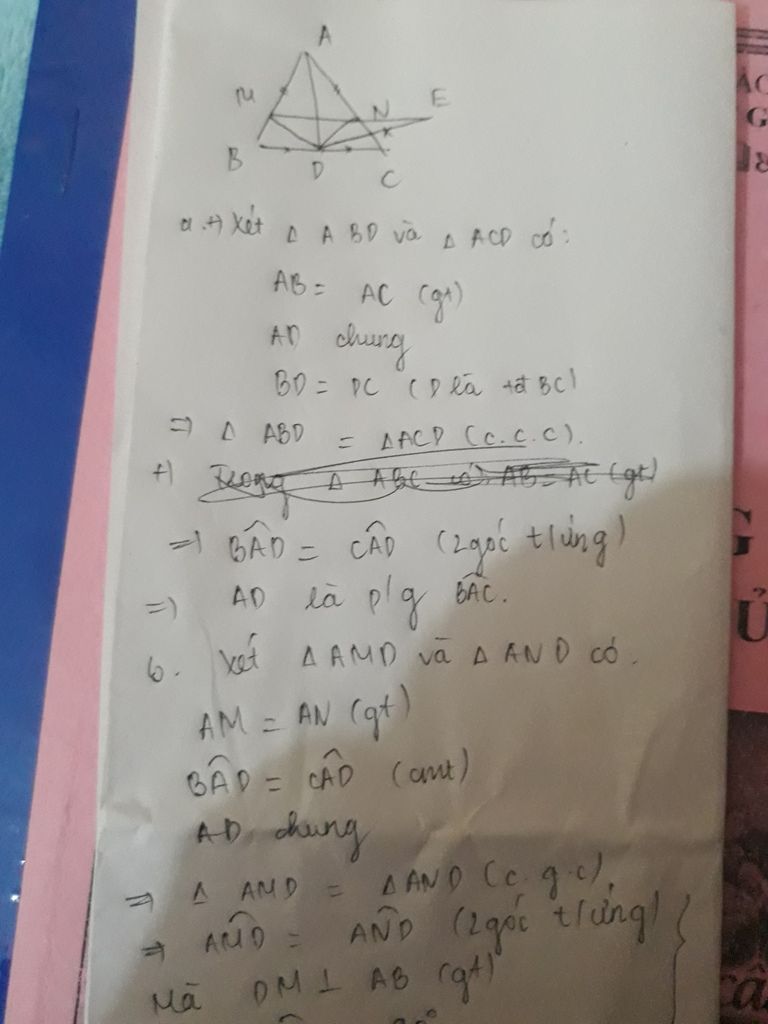 A
M
N
E
B
D
C
a. +) Xét Δ ABD và Δ ACD có:
AB = AC (gt)
AD chung
BD = DC (D là tđ BC)
=> Δ ABD = ΔACD (c.c.c).
+) Trong Δ ABC có AB = AC (gt)
=> BÂD = CÂD (2 góc t/ứng)
=> AD là p/g BÂC.
b. Xét ΔAMD và Δ AND có.
AM = AN (gt)
BÂD = CÂD (cmt)
AD chung
=> Δ AMD = ΔAND (c.g.c)
=> AM̂D = AN̂D (2 góc t/ứng) }
Mà DM ⊥ AB (gt)
G
Ủ